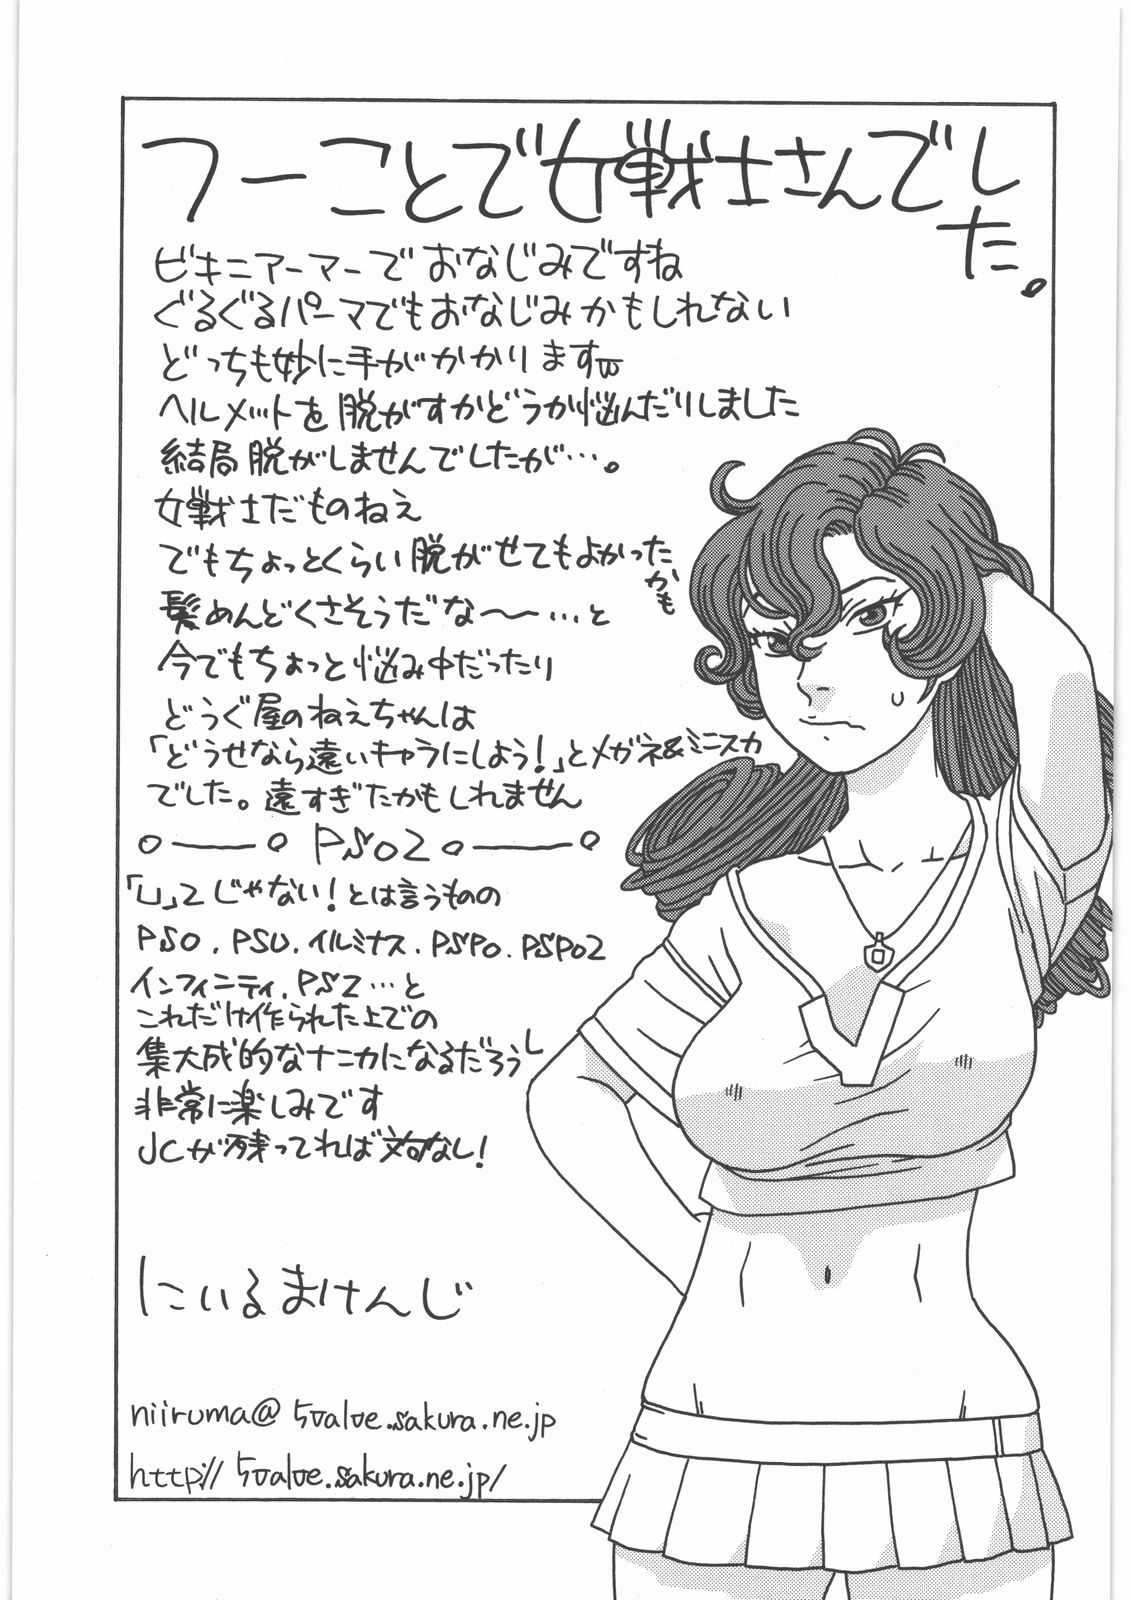 つーことで女戦士さんでした。
ビキニアーマーでおなじみですね
ぐるぐるパーマでもおなじみかもしれない
どっちも妙に手がかかりますw
ヘルメットを脱がすかどうか悩んだりしました
結局脱がしませんでしたが…。
女戦士だものねえ
でもちょっとくらい脱がせてもよかったかも
髪めんどくさそうだな〜〜…と
今でもちょっと悩み中だったり
どうぐ屋のねえちゃんは
「どうせなら遠いキャラにしよう!」とメガネ&ミニスカ
でした。遠すぎたかもしれません
PSO2
「U」2じゃない!とは言うものの
PSO.PSU.イルミナス.PSPO.PSPO2
インフィニティ.PSZ…と
これだけ作られた上での
集大成的なナニカになるだろうし
非常に楽しみです
JCが残ってれば文句なし!
にいるまけんじ
niiruma@5value.sakura.ne.jp
http://5value.sakura.ne.jp/